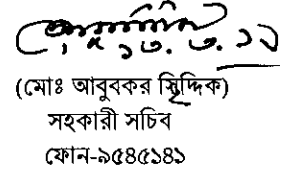 ১৩. ৩. ১২
(মোঃ আবুবকর সিদ্দিক)
সহকারী সচিব
ফোন-৯৫৪৫১৪১